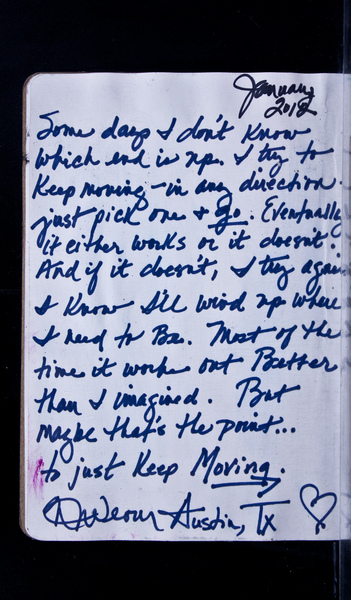 January
2012
Some days I don't know
which end is up. I try to
Keep moving - in any direction.
just pick one & go. Eventually
it either works or it doesn't.
And if it doesn't, I try again
I know I'll wind up where
I need to Be. Most of the
time it works out Better
than I imagined. But
maybe that's the point...
to just Keep Moving.
Austin, TX